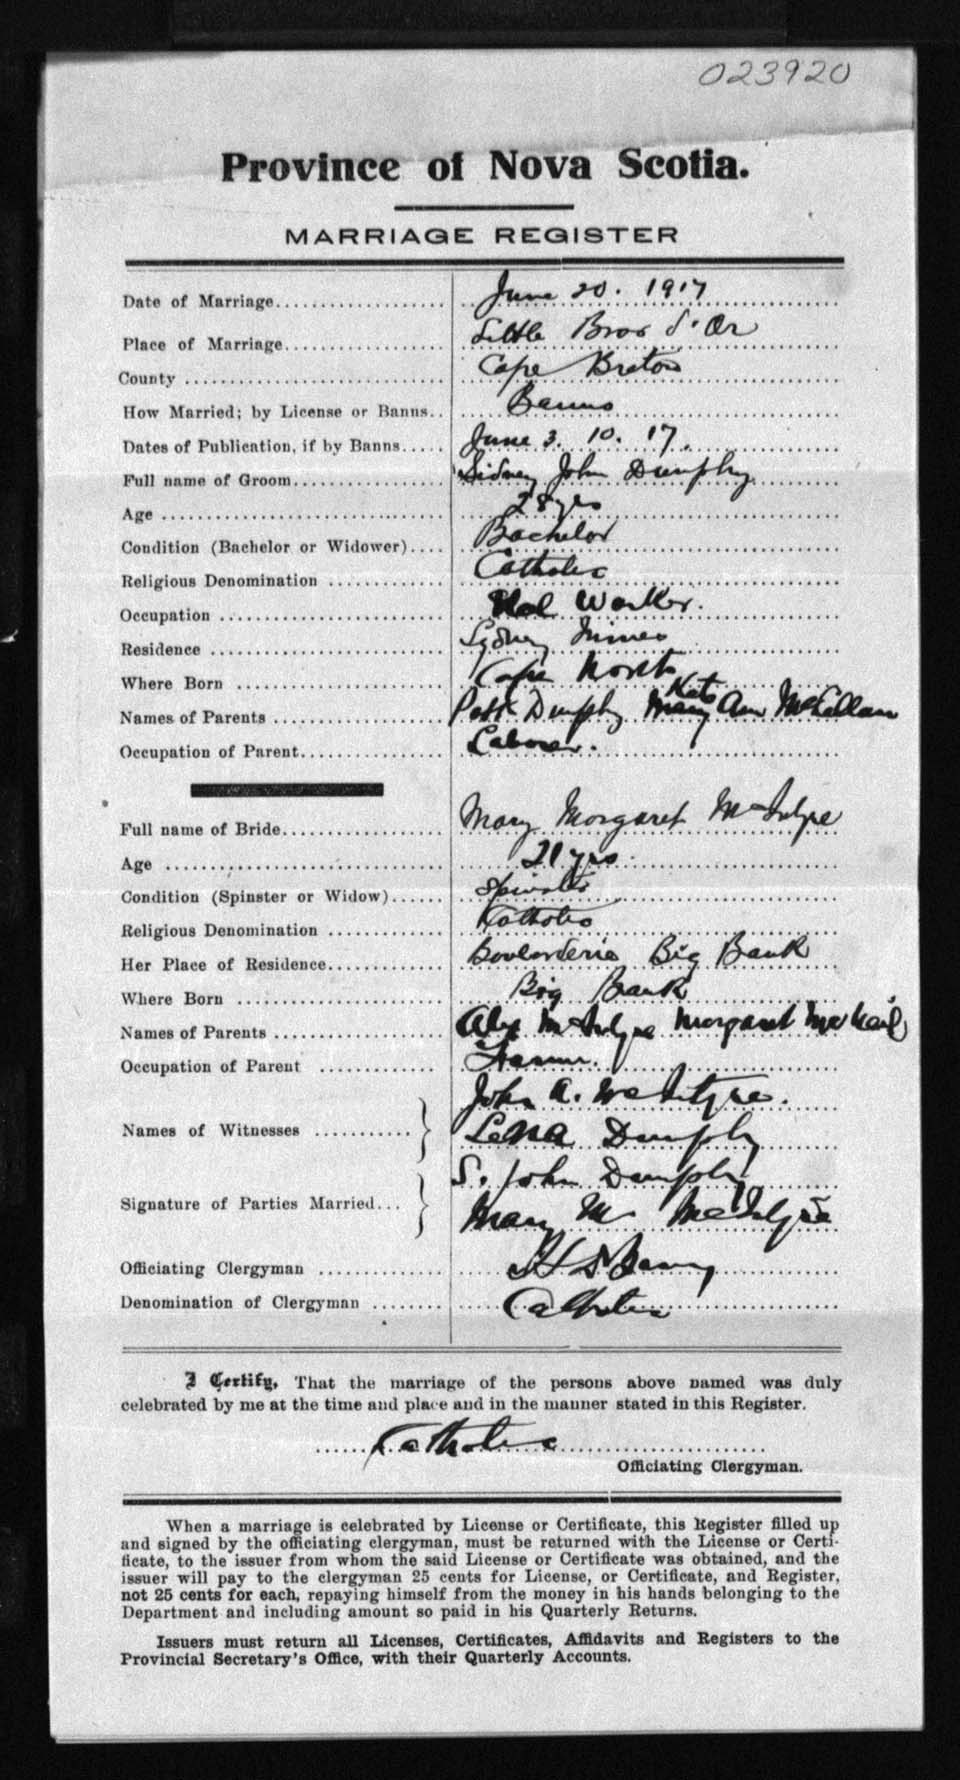 023920
Province of Nova Scotia.
MARRIAGE REGISTER
Date of Marriage................... June 20. 1917
Place of Marriage.................. Little Bras d'Or
County ............................ Cape Breton
How Married; by License or Banns.. Banns
Dates of Publication, if by Banns..... June 3. 10. 17.
Full name of Groom................. Sidney John Dunphy
Age ............................... 28 yrs
Condition (Bachelor or Widower).... Bachelor
Religious Denomination ............. Catholic
Occupation ......................... Worker.
Residence .......................... Sydney Mines
Where Born ........................ Cape North
Names of Parents .................. Patk Dunphy Mary Kate Ann McLellan
Occupation of Parent............... Laborer.
Full name of Bride................. Mary Margaret McIntyre
Age ............................... 21 yrs.
Condition (Spinster or Widow)...... Spinster
Religious Denomination ............. Catholic
Her Place of Residence............. Boularderie Big Bank
Where Born ........................ Big Bank
Names of Parents .................. Alex McIntyre Margaret McNeil
Occupation of Parent .............. Farmer.
John A. McIntyre.
Names of Witnesses ...........
Lena Dunphy
S. John Dunphy
Signature of Parties Married...
Mary M McIntyre
Officiating Clergyman ..............
Denomination of Clergyman ........ Catholic
I Certify, That the marriage of the persons above named was duly
celebrated by me at the time and place and in the manner stated in this Register.
Catholic
Officiating Clergyman.
When a marriage is celebrated by License or Certificate, this Register filled up
and signed by the officiating clergyman, must be returned with the License or Certi-
ficate, to the issuer from whom the said License or Certificate was obtained, and the
issuer will pay to the clergyman 25 cents for License, or Certificate, and Register,
not 25 cents for each, repaying himself from the money in his hands belonging to the
Department and including amount so paid in his Quarterly Returns.
Issuers must return all Licenses, Certificates, Affidavits and Registers to the
Provincial Secretary's Office, with their Quarterly Accounts.